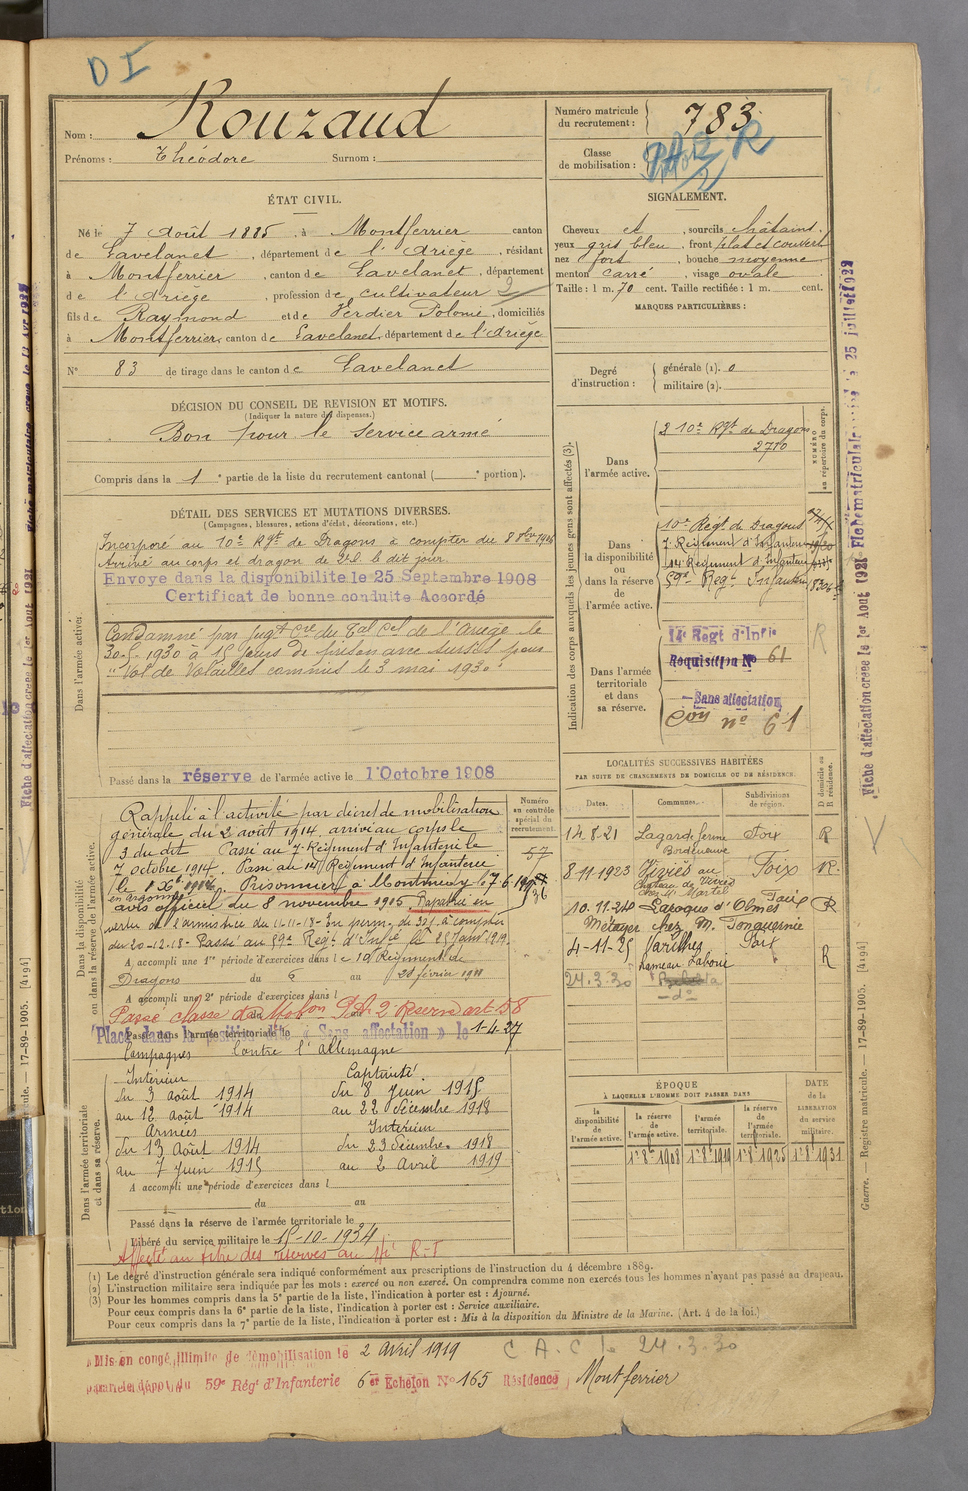 D I
Nom : Rouzaud
Prénoms : Théodore Surnom :
Numéro matricule du recrutement : 783
Classe de mobilisation :
ÉTAT CIVIL.
Né le 7 Août 1885, à Montferrier canton
de Lavelanet, département de l'Ariège, résidant
à Montferrier, canton de Lavelanet, département
de l'Ariège, profession de cultivateur
fils de Raymond et de Verdier Polonie, domiciliés
à Montferrier, canton de Lavelanet, département de l'Ariège
N° 83 de tirage dans le canton de Lavelanet
SIGNALEMENT.
Cheveux et, sourcils châtains.
yeux gris bleu, front plat et couvert
nez fort, bouche moyenne
menton carré, visage ovale
Taille : 1 m. 70 cent. Taille rectifiée : 1 m. cent.
MARQUES PARTICULIÈRES :
Degré d'instruction : générale (1). 0
militaire (2).
DÉCISION DU CONSEIL DE REVISION ET MOTIFS.
(Indiquer la nature des dispenses.)
Bon pour le service armé
Compris dans la 1e partie de la liste du recrutement cantonal ( e portion).
DÉTAIL DES SERVICES ET MUTATIONS DIVERSES.
(Campagnes, blessures, actions d'éclat, décorations, etc.)
Dans l'armée active.
Incorporé au 10e Rgt de Dragons à compter du 8 8bre 1906
Arrivé au corps et dragon de 2e cl. le dit jour.
Envoyé dans la disponibilité le 25 Septembre 1908
Certificat de bonne conduite Accordé
Condamné par jugt Cre du Tal Cel de l'Ariège le
30-5-1930 à 15 jours de prison avec sursis pour
"Vol de Volailles commis le 3 mai 1930"
Passé dans la réserve de l'armée active le 1 Octobre 1908
Indication des corps auxquels les jeunes gens sont affectés (3).
NUMÉRO au répertoire du corps.
Dans l'armée active.
10e Rgt de Dragons
2780
Dans la disponibilité ou dans la réserve de l'armée active.
10e Régt de Dragons
7e Régiment d'Infanterie
14e Régiment d'Infanterie
59e Régt Infanterie
Dans l'armée territoriale et dans sa réserve.
14e Regt d'Infie
Requisition N° 61
Sans affectation
Con n° 61
R
LOCALITÉS SUCCESSIVES HABITÉES
PAR SUITE DE CHANGEMENTS DE DOMICILE OU DE RÉSIDENCE.
Dates. Communes. Subdivisions de région. D domicile ou R résidence.
14-8-21 Lagarde ferme Bordeneuve Foix R
8-11-1923 Viviès au Château de Viviès chez Mr Martel Foix R.
10-11-24 Laroque d'Olmes Foix R
Métayer chez M. Fonquernie
4-11-25 Varilhes Foix R
hameau Laborie
24-3-30
- do -
Dans la disponibilité ou dans la réserve de l'armée active.
Numéro au contrôle spécial du recrutement.
57
Rappelé à l'activité par décret de mobilisation
générale du 2 août 1914, arrivé au corps le
3 du dit Passé au 7e Régiment d'Infanterie le
7 octobre 1914. Passé au 14e Régiment d'Infanterie
Prisonnier à Montmédy le 7-6-1915
en Argonne
avis officiel du 8 novembre 1915 Rapatrié en
vertu de l'armistice du 11-11-18- En perm. de 30 j. à compter
du 20-12-18- Passé au 59e Régt d'Infie le 25 Janv 1919.
A accompli une 1re période d'exercices dans le 10e Régiment de
Dragons du 6 au 28 février 1911
A accompli une 2e période d'exercices dans l
Passé classe de Mobon P.A. 2e Réserve art. 58
Passé dans l'armée territoriale le
"Placé dans la position dite « Sans affectation » le 1-4-27
Dans l'armée territoriale et dans sa réserve.
Campagnes contre l'Allemagne
Intérieur
du 3 août 1914
au 12 Août 1914
Armées
du 13 Août 1914
au 7 Juin 1915
Captivité
du 8 Juin 1915
au 22 Décembre 1918
Intérieur
du 23 Décembre 1918
au 2 Avril 1919
A accompli une période d'exercices dans l
du au
Passé dans la réserve de l'armée territoriale le
Libéré du service militaire le 15-10-1934
Affecté au titre des réserves au R-T
ÉPOQUE À LAQUELLE L'HOMME DOIT PASSER DANS
la disponibilité de l'armée active. la réserve de l'armée active. l'armée territoriale. la réserve de l'armée territoriale.
DATE de la LIBÉRATION du service militaire.
1er 8bre 1908 1er 8bre 1919 1er 8bre 1925 1er 8bre 1931
(1) Le degré d'instruction générale sera indiqué conformément aux prescriptions de l'instruction du 4 décembre 1889.
(2) L'instruction militaire sera indiquée par les mots : exercé ou non exercé. On comprendra comme non exercés tous les hommes n'ayant pas passé au drapeau.
(3) Pour les hommes compris dans la 5e partie de la liste, l'indication à porter est : Ajourné.
Pour ceux compris dans la 6e partie de la liste, l'indication à porter est : Service auxiliaire.
Pour ceux compris dans la 7e partie de la liste, l'indication à porter est : Mis à la disposition du Ministre de la Marine. (Art. 4 de la loi.)
Mis en congé illimité de démobilisation le 2 Avril 1919 C A. C le 24-3-30
par le dépôt du 59e Régt d'Infanterie 6er Echelon N° 165 Résidence Montferrier
Fiche d'affectation créée le 1er Aout 1921 Fiche matriculaire le 25 juillet 1922
Guerre. — Registre matricule. — 17-89-1905. [4194]